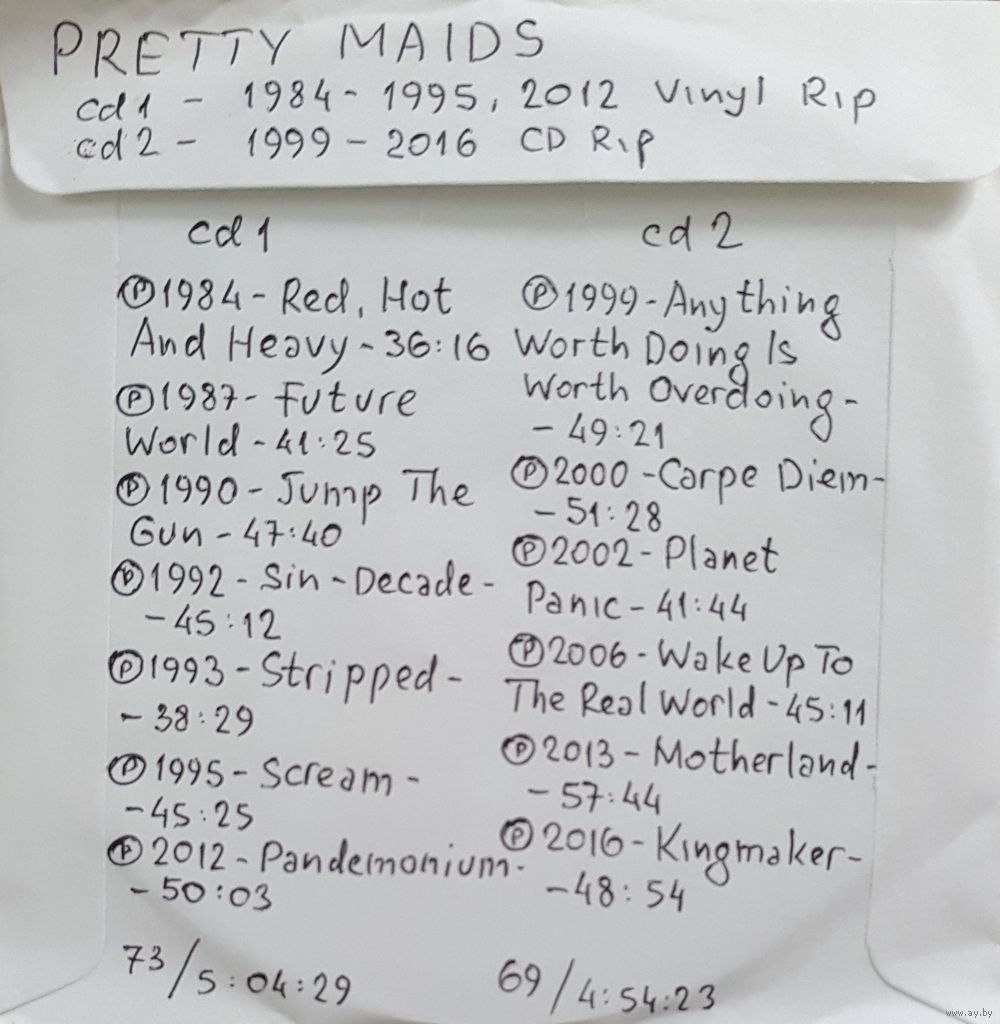 PRETTY MAIDS
cd 1 - 1984 - 1995, 2012 Vinyl Rip
cd 2 - 1999 - 2016 CD Rip
cd 1
Ⓟ1984 - Red, Hot
And Heavy - 36:16
Ⓟ1987 - Future
World - 41:25
Ⓟ1990 - Jump The
Gun - 47:40
Ⓟ1992 - Sin - Decade -
- 45:12
Ⓟ1993 - Stripped -
- 38:29
Ⓟ1995 - Scream -
- 45:25
Ⓟ2012 - Pandemonium -
- 50:03
73/5:04:29
cd 2
Ⓟ1999 - Anything
Worth Doing Is
Worth Overdoing -
- 49:21
Ⓟ2000 - Carpe Diem -
- 51:28
Ⓟ2002 - Planet
Panic - 41:44
Ⓟ2006 - Wake Up To
The Real World - 45:11
Ⓟ2013 - Motherland -
- 57:44
Ⓟ2016 - Kingmaker -
- 48:54
69/4:54:23
www.ay.by